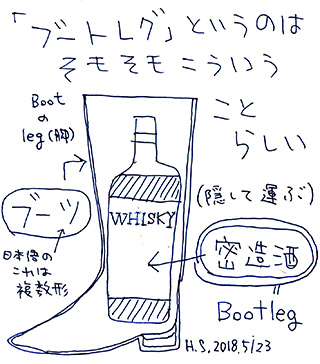 「ブートレグ」というのは
そもそもこういう
こと
らしい
Boot
の
leg (脚)
ブーツ
日本語の
これは
複数形
WHISKY
(隠して運ぶ)
密造酒
Bootleg
H.S, 2018, 5/23